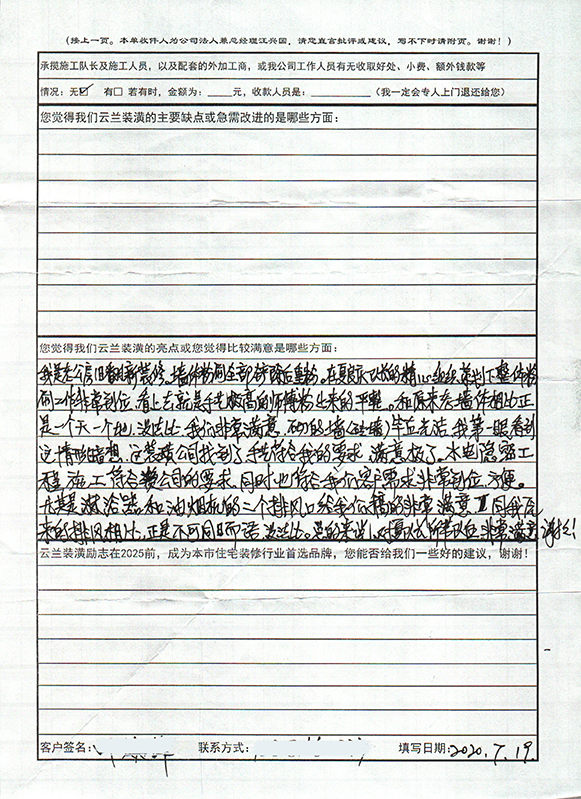 (接上一页。本单收件人为公司法人兼总经理江兴国，请您直言批评或建议，写不下时请附页。谢谢！)
承揽施工队长及施工人员，以及配套的外加工商，或我公司工作人员有无收取好处、小费、额外钱款等
情况：无☑ 有□ 若有时，金额为：____元，收款人是：________（我一定会专人上门退还给您）
您觉得我们云兰装潢的主要缺点或急需改进的是哪些方面：
您觉得我们云兰装潢的亮点或您觉得比较满意是哪些方面：
我是老公房旧翻新装修，墙体粉刷全部铲除后重粉，在夏队长的精心组织策划下整体粉
刷工作非常到位，看上去就是手艺极高的师傅粉出来的平整。和原来老墙体相比正
是一个天一个地，没法比，我们非常满意，的墙毕直光洁，我第一眼看到
这情形暗想，这装璜公司找到了，符合我的要求，满意极了。水电隐蔽工
程，施工符合公司的要求，同时也符合我们客户需求非常到位，方便。
尤其是淋浴器和油烟机的二个排风口给我们搞的非常满意，同我原
来的排风相比，正是不可同日而语，没法比。总的来说，对夏队长所事非常满意，谢谢！
云兰装潢励志在2025前，成为本市住宅装修行业首选品牌，您能否给我们一些好的建议，谢谢！
客户签名： 联系方式： 填写日期：2020.7.19.